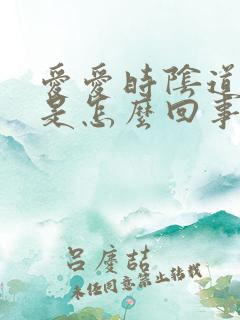 愛愛時陰道
是怎麼回事
呂慶喆
未經同意禁止轉載